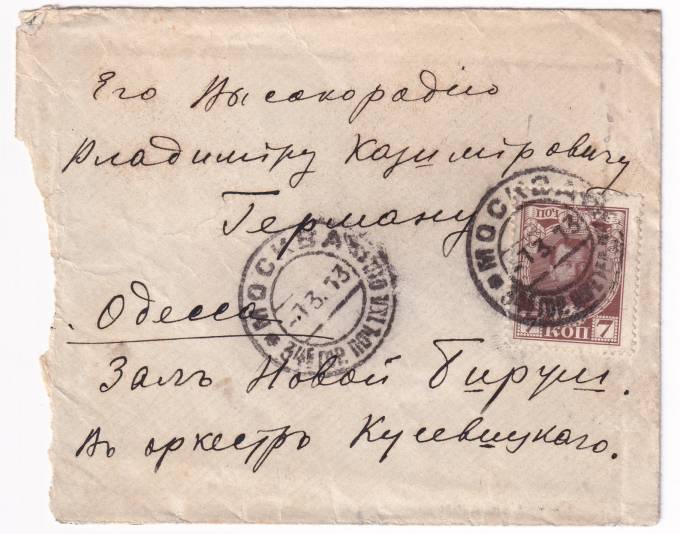 Его Высокородію
Владиміру Казиміровичу
Герману
МОСКВА
-1.3.13
34Е ГОР. ПОЧ.
МОСКВА
-1.3.13
КОП
7
Одесса
Залъ Новой Биржи.
Въ оркестръ Кусевицкаго.